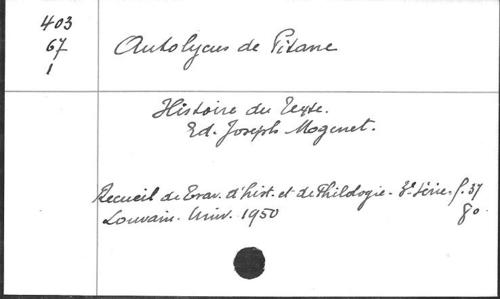 403
67
1
Autolycus de Pitane
Histoire du Texte.
Ed. Joseph Mogenet.
Recueil de Trav. d'hist. et de Philologie - 3e Série f. 37
Louvain. Univ. 1950 8o.